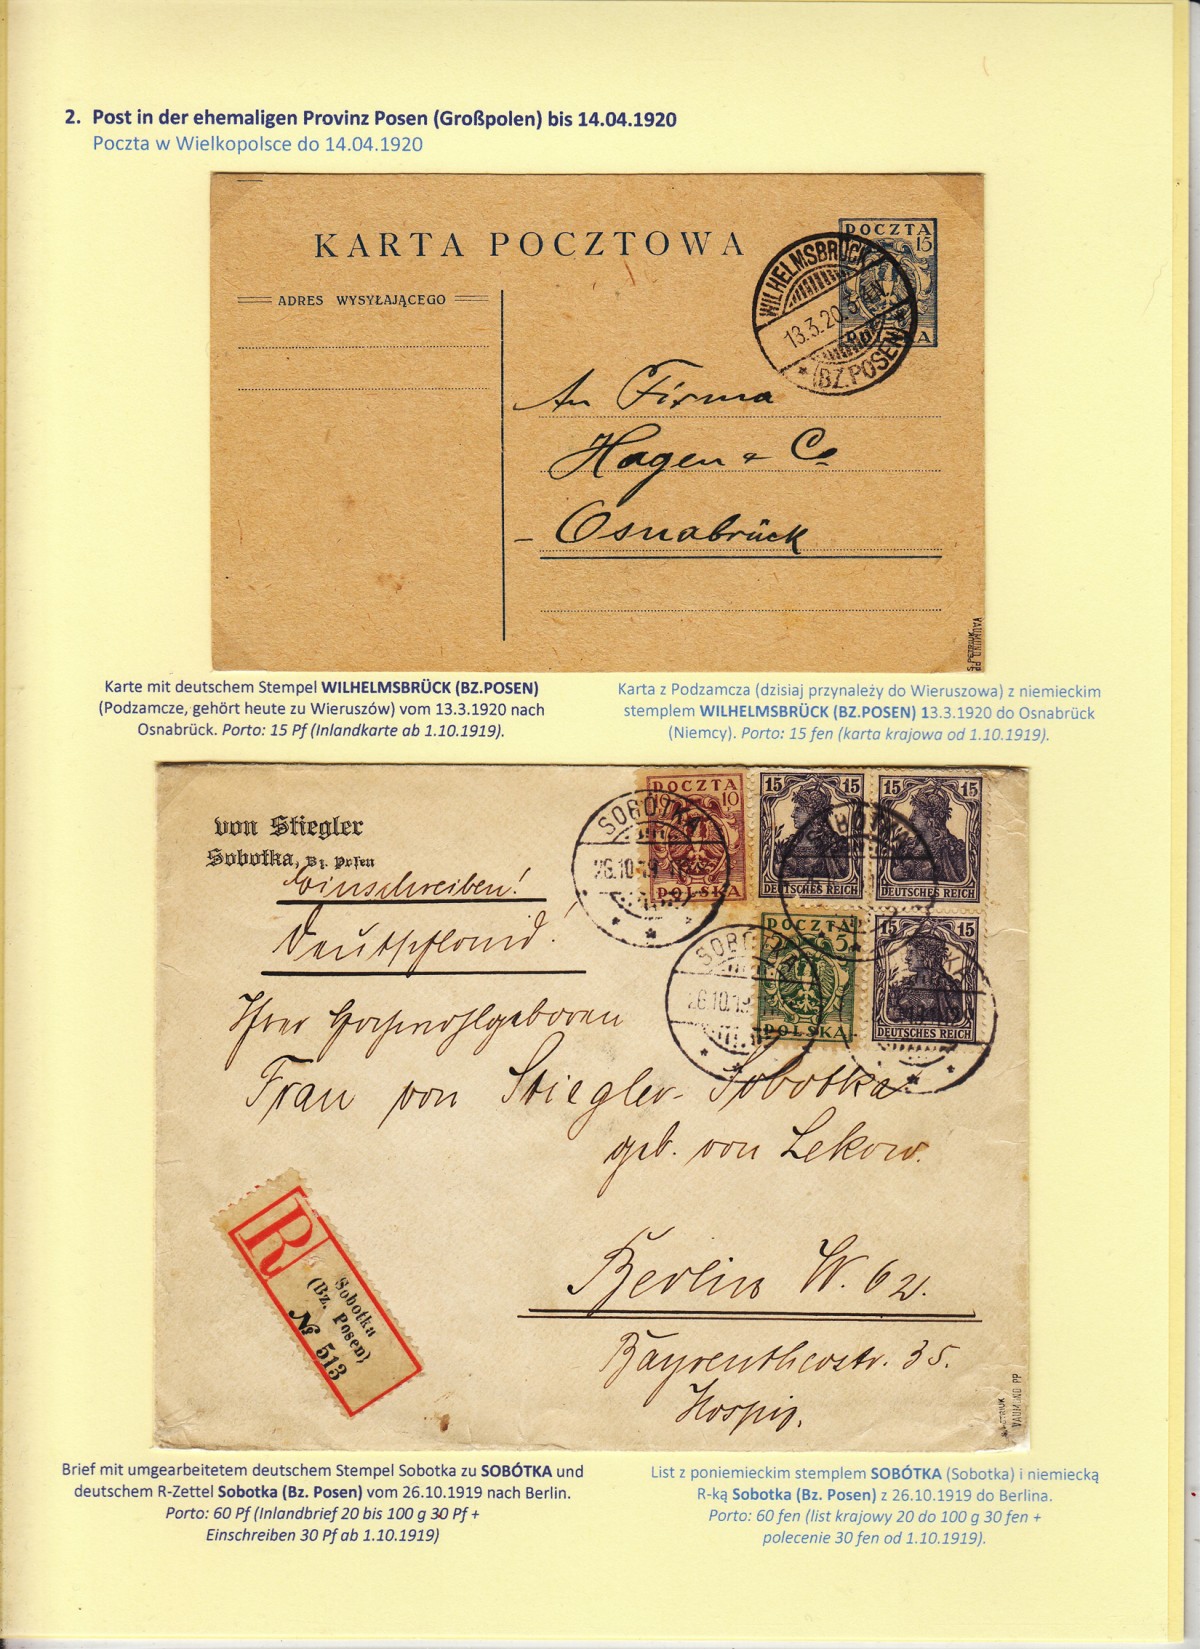 2. Post in der ehemaligen Provinz Posen (Großpolen) bis 14.04.1920
Poczta w Wielkopolsce do 14.04.1920
KARTA POCZTOWA
POCZTA
15
POLSKA
WILHELMSBRÜCK
13.3.20. 3-4N.
* (BZ.POSEN) *
ADRES WYSYŁAJĄCEGO
An Firma
Hagen & Co
Osnabrück
S. PETRIUK
VAUMUND PP
Karte mit deutschem Stempel WILHELMSBRÜCK (BZ.POSEN)
(Podzamcze, gehört heute zu Wieruszów) vom 13.3.1920 nach
Osnabrück. Porto: 15 Pf (Inlandkarte ab 1.10.1919).
Karta z Podzamcza (dzisiaj przynależy do Wieruszowa) z niemieckim
stemplem WILHELMSBRÜCK (BZ.POSEN) 13.3.1920 do Osnabrück
(Niemcy). Porto: 15 fen (karta krajowa od 1.10.1919).
von Stiegler
Sobotka, Bz. Posen
Einschreiben!
Deutschland!
POCZTA
10
POLSKA
15 15
DEUTSCHES REICH
15 15
DEUTSCHES REICH
POCZTA
5
POLSKA
15 15
DEUTSCHES REICH
SOBÓTKA
26.10.19
SOBÓTKA
26.10.19
Ihrer Hochwohlgeboren
Frau von Stiegler-Sobotka
geb. von Lekow.
Berlin W. 62.
Bayreutherstr. 35.
Hospiz.
R
Sobotka
(Bz. Posen)
№ 513
S. PETRIUK
VAUMUND PP
Brief mit umgearbeitetem deutschem Stempel Sobotka zu SOBÓTKA und
deutschem R-Zettel Sobotka (Bz. Posen) vom 26.10.1919 nach Berlin.
Porto: 60 Pf (Inlandbrief 20 bis 100 g 30 Pf +
Einschreiben 30 Pf ab 1.10.1919)
List z poniemieckim stemplem SOBÓTKA (Sobotka) i niemiecką
R-ką Sobotka (Bz. Posen) z 26.10.1919 do Berlina.
Porto: 60 fen (list krajowy 20 do 100 g 30 fen +
polecenie 30 fen od 1.10.1919).